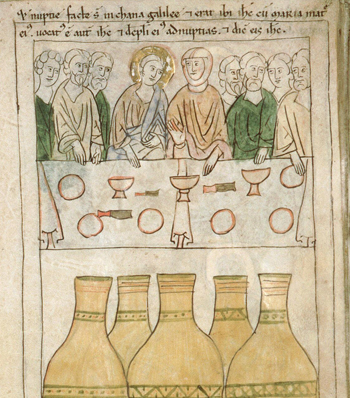 nuptie facte sť in chana galilee ⁊ erat ibi ihc cū maria mať
ei᾽ vocať ē aut ihc ⁊ discipli ei᾽ ad nuptias ⁊ dic̄ eis ihc.